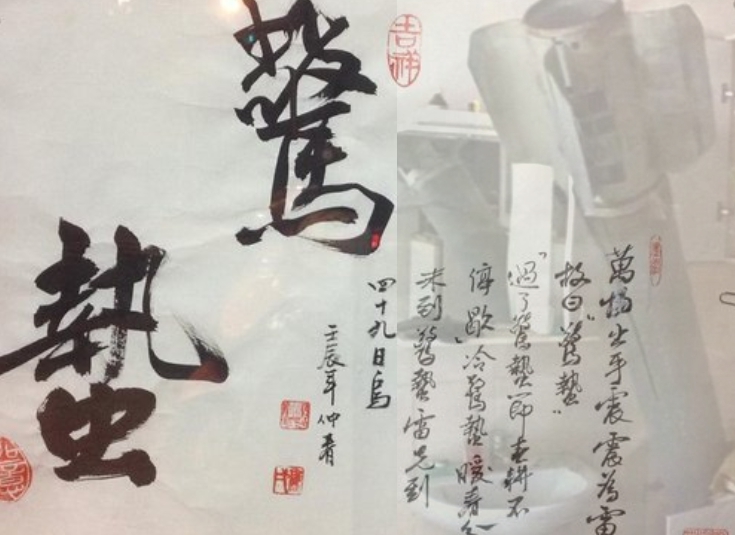 驚
蟄
吉祥
萬物出乎震震為雷
故曰"驚蟄"
"過了驚蟄節春耕不
停歇"冷驚蟄暖春分
未到驚蟄雷先到
四十九日烏
壬辰年仲春